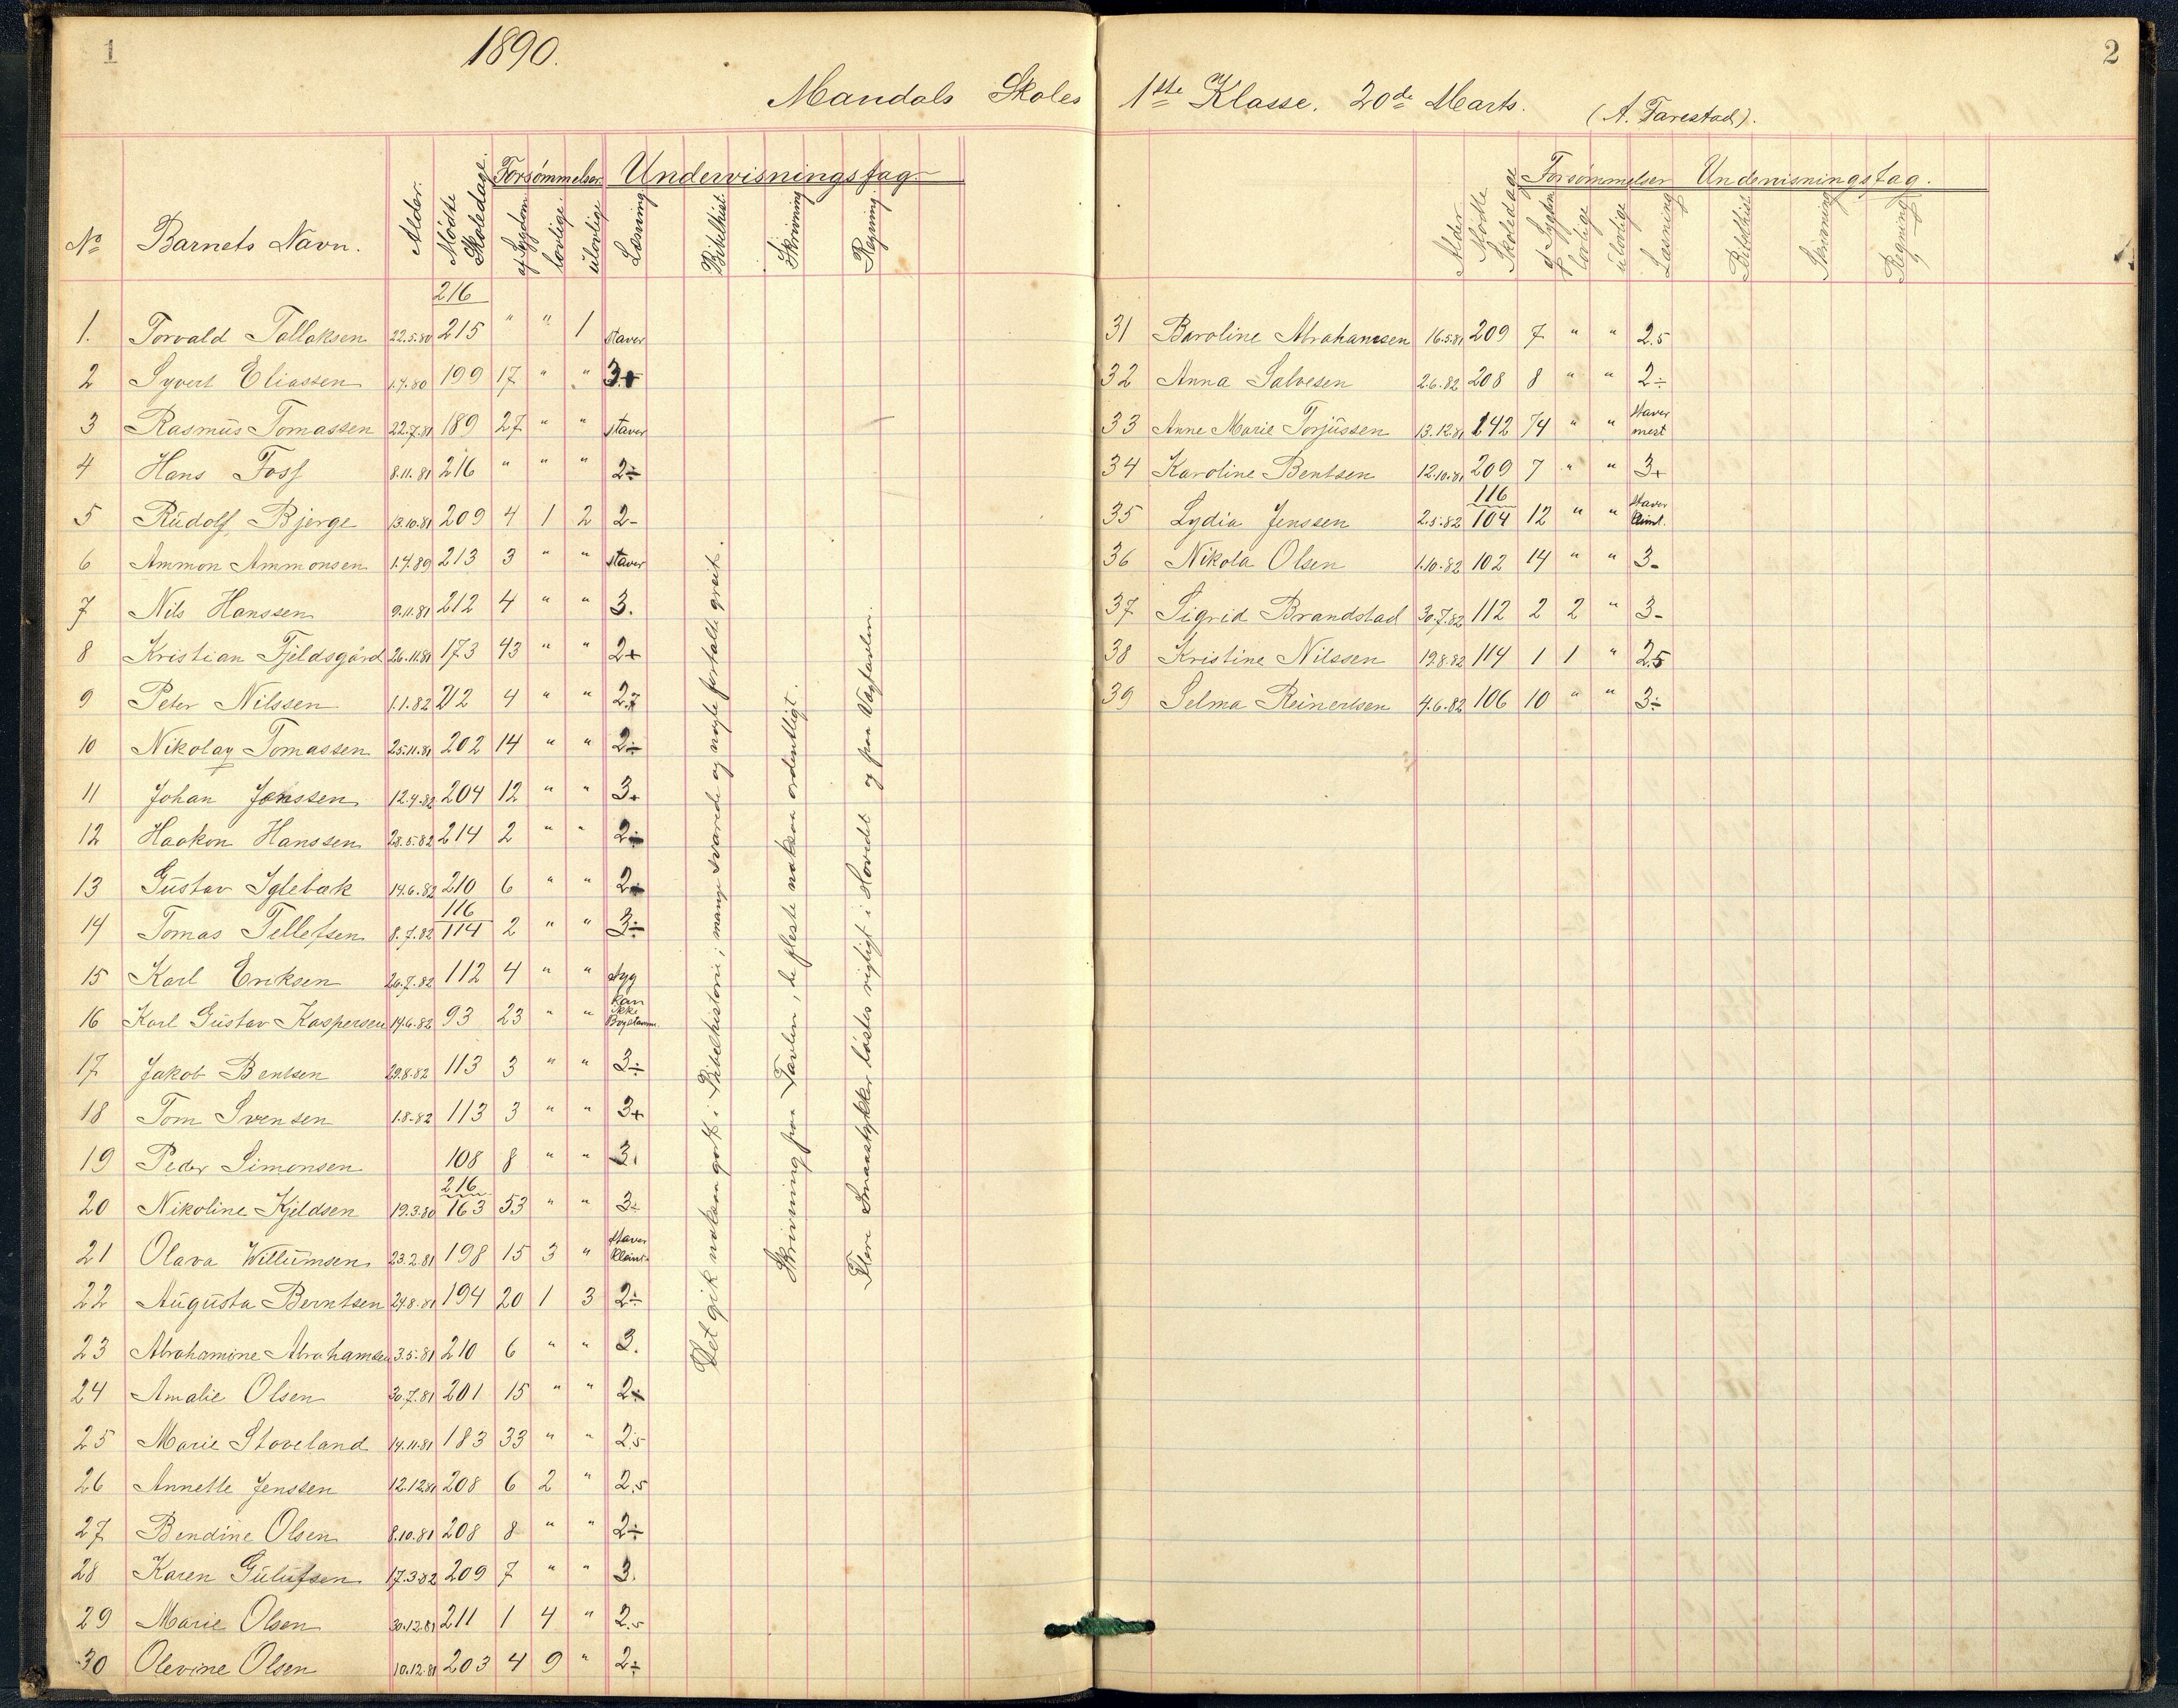 1
1890.
Mandals Skoles
No Barnets Navn. Alder. Mødte Skoledage. Forsømmelser. Undervisningsfag
af Sygdom lovlige. ulovlige Læsning Bibelhist. Skrivning Regning
216
1. Torvald Tallaksen 22.5.80 215 " " 1 staver
2 Syvert Eliassen 1.7.80 199 17 " " 3+
3 Rasmus Tomassen 22.7.81 189 27 " " staver
4 Hans Foss 8.11.81 216 " " " 2÷
5 Rudolf Bjerge 13.10.81 209 4 1 2 2-
6 Ammon Ammonsen 1.7.89 213 3 " " staver
7 Nils Hanssen 9.11.81 212 4 " " 3.
8 Kristian Fjeldsgård 26.11.81 173 43 " " 2+
9 Peter Nilssen 1.1.82 212 4 " " 2.7
10 Nikolay Tomassen 25.11.81 202 14 " " 2÷
11 Johan Jonssen 12.4.82 204 12 " " 3+
12 Haakon Hanssen 28.5.82 214 2 " " 2÷
13 Gustav Iglebæk 14.6.82 210 6 " " 2+
116
14 Tomas Tellefsen 8.7.82 114 2 " " 3÷
15 Karl Eriksen 26.7.82 112 4 " " syg
16 Karl Gustav Kaspersen 14.6.82 93 23 " " kan ikke Bogstavene
17 Jakob Bentsen 29.8.82 113 3 " " 3÷
18 Tom Svensen 1.8.82 113 3 " " 3+
19 Peder Simonsen 108 8 " " 3.
216
20 Nikoline Kjeldsen 19.3.80 163 53 " " 3÷
21 Olava Willumsen 23.2.81 198 15 3 " staver kleint.
22 Augusta Berntsen 24.8.81 194 20 1 3 2÷
23 Abrahamine Abrahamsen 3.5.81 210 6 " " 3.
24 Amalie Olsen 30.7.81 201 15 " " 2+
25 Marie Stoveland 14.11.81 183 33 " " 2.5
26 Annette Jenssen 12.12.81 208 6 2 " 2.5
27 Bendine Olsen 8.10.81 208 8 " " 2÷
28 Karen Gulufsen 17.3.82 209 7 " " 3.
29 Marie Olsen 30.12.81 211 1 4 " 2.5
30 Olevine Olsen 10.12.81 203 4 9 " 2÷
Det gik noksaa godt i Bibelhistorie; mange svarede og nogle fortalte greit.
Skrivning paa Tavlen, de fleste noksaa ordentligt.
Flere Smaastykker løstes rigtigt i Hovedet og paa Vægtavlen.
2
1ste Klasse. 20de Marts.
(A. Farestad).
Alder Mødte Skoledage Forsømmelser Undervisningsfag.
af Sygdom lovlige ulovlige Læsning Bibelhist. Skrivning Regning
31 Baroline Abrahamsen 16.5.81 209 7 " " 2.5
32 Anna Salvesen 2.6.82 208 8 " " 2÷
33 Anne Marie Torjussen 13.12.81 142 74 " " staver mest
34 Karoline Bentsen 12.10.81 209 7 " " 3+
116
35 Lydia Jenssen 2.5.82 104 12 " " staver kleint.
36 Nikola Olsen 1.10.82 102 14 " " 3-
37 Sigrid Brandstad 30.7.82 112 2 2 " 3-
38 Kristine Nilssen 19.8.82 114 1 1 " 2.5
39 Selma Reinertsen 4.6.82 106 10 " " 3÷